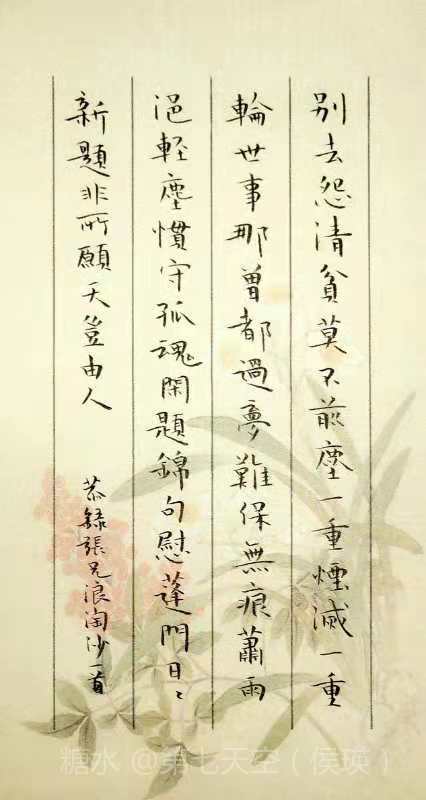 別去怨清貧莫不前塵一重煙滅一重
輪世事那曾都過夢難保無痕蕭雨
浥輕塵慣守孤魂閑題錦句慰蓬門日〻
新題非所願天豈由人
恭錄張兄浪淘沙一首
糖水 @第七天空（侯瑛）